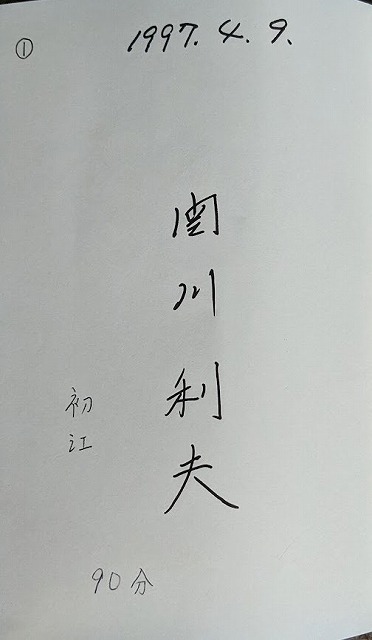 ①
1997. 4. 9.
関川利夫
初江
90分